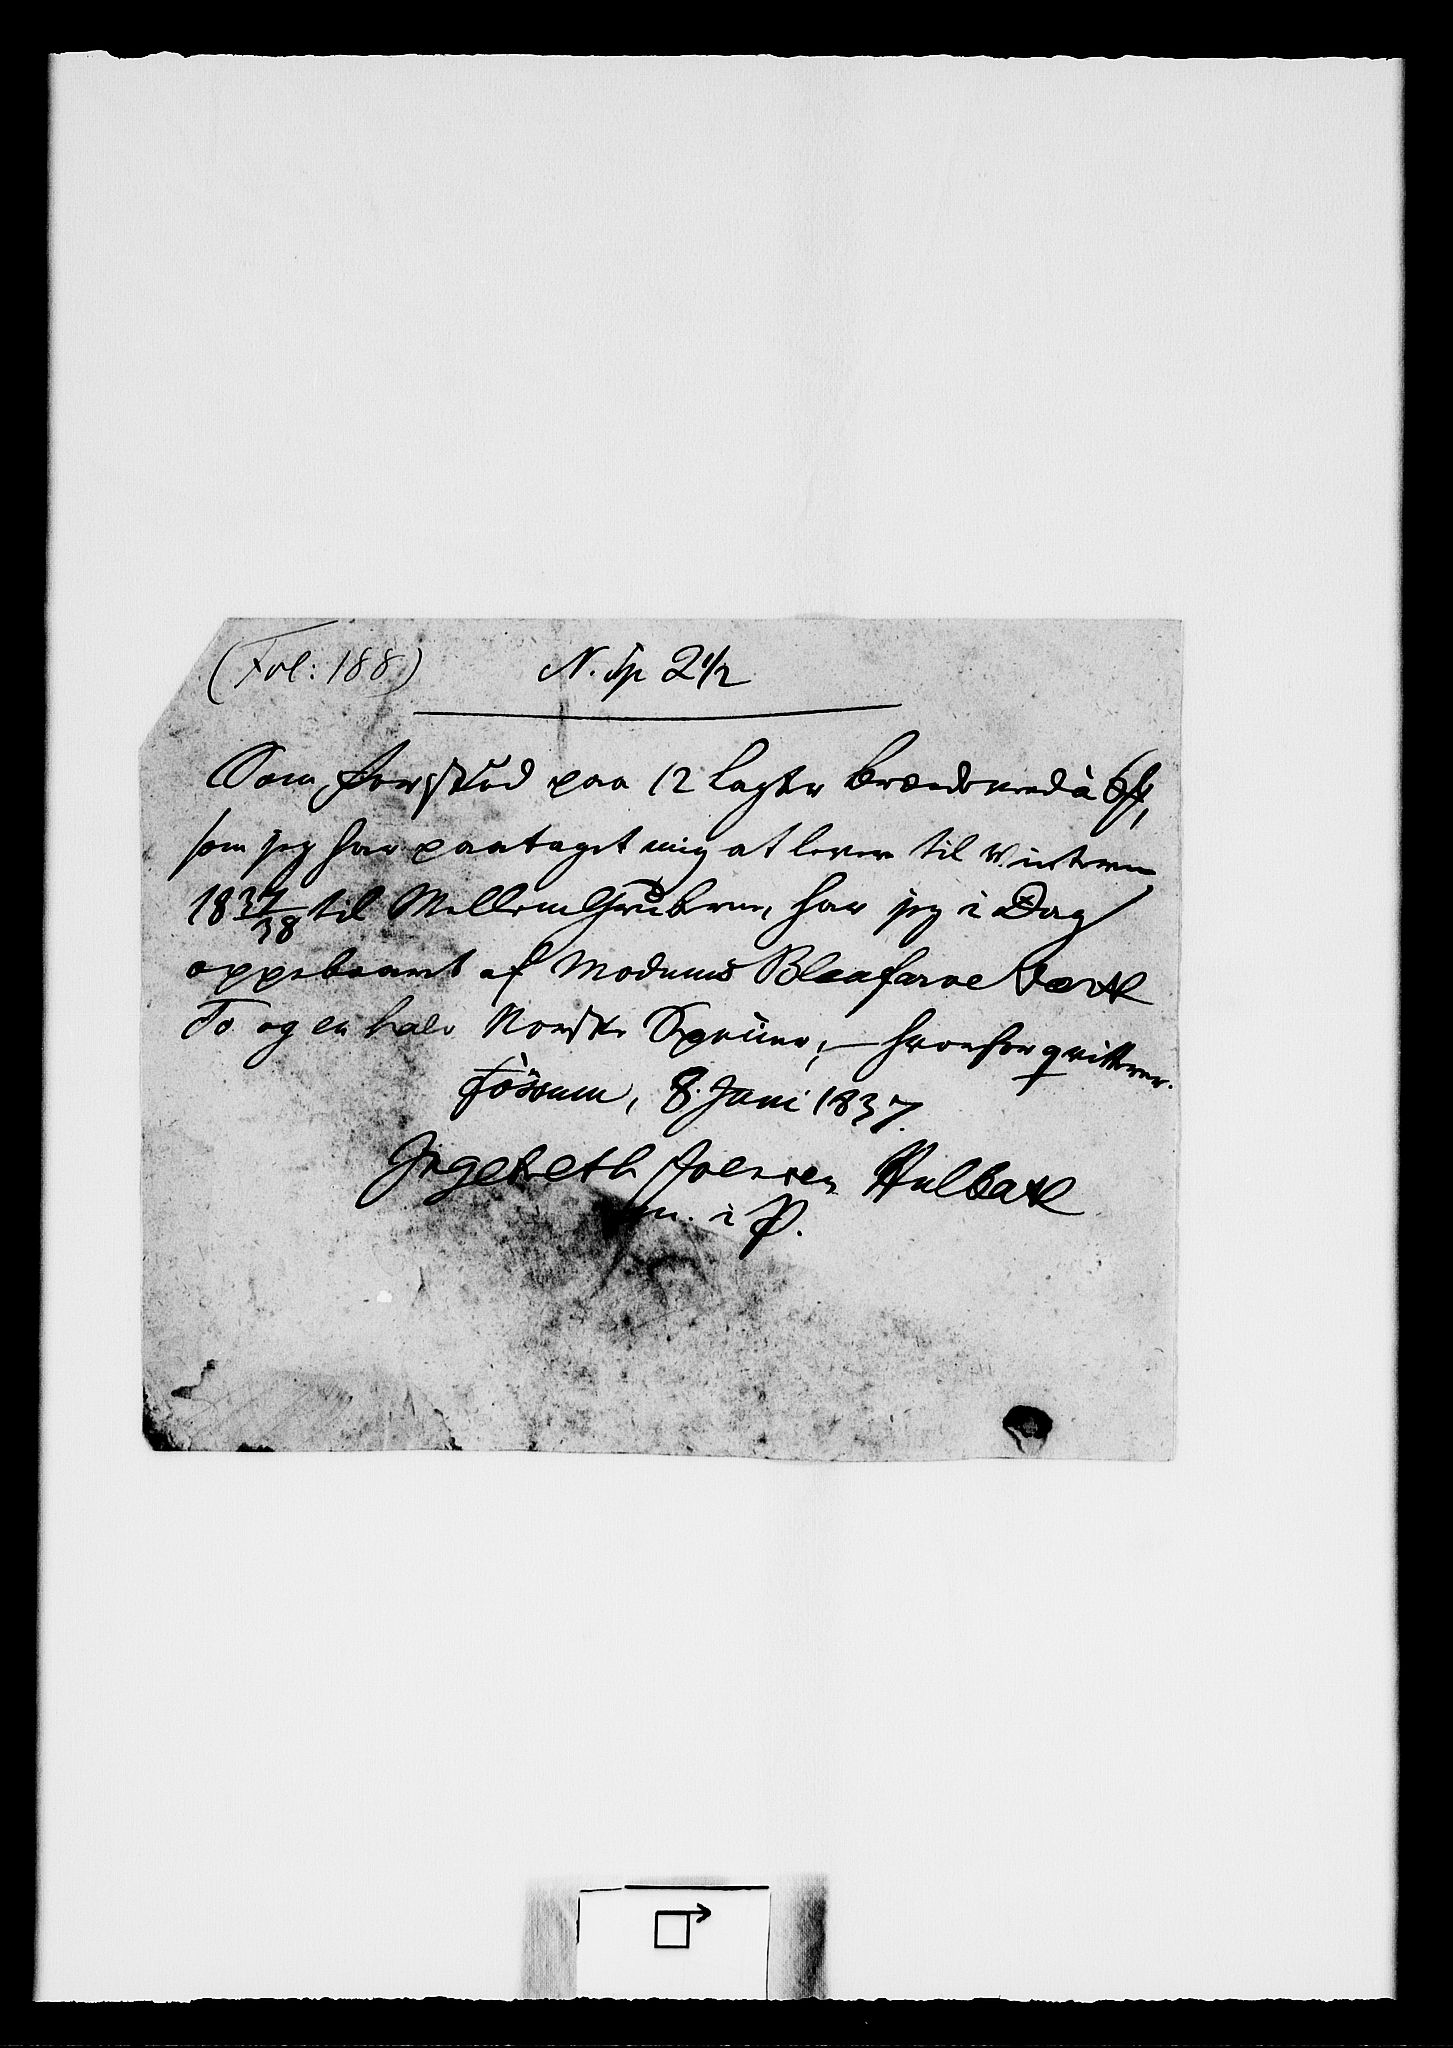 (Fol: 188) N. Sp 2 1/2
Som Forskud paa 12 Lagter Brændeved à
som jeg har paataget mig at levere til Vinteren
1837/38 til Mellem Gruberne, har jeg i Dag
oppebaaret af Modums Blaafarve Værk
To og en halv Norske Species, hvorfor qvitterer.
Fossum, 8. Juni 1837.
Ingebreth Hulbak
m. i P.